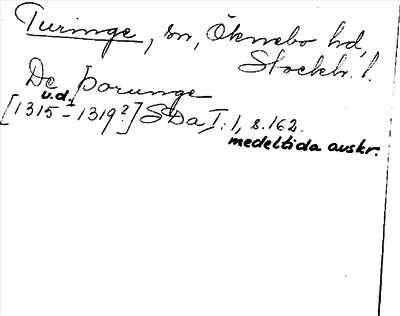 Turinge, sn, Öknebo hd,
Stockh. l.
De þorunge
u.d.
[1315-1319?] SDa I:1, s.162.
medeltida avskr.